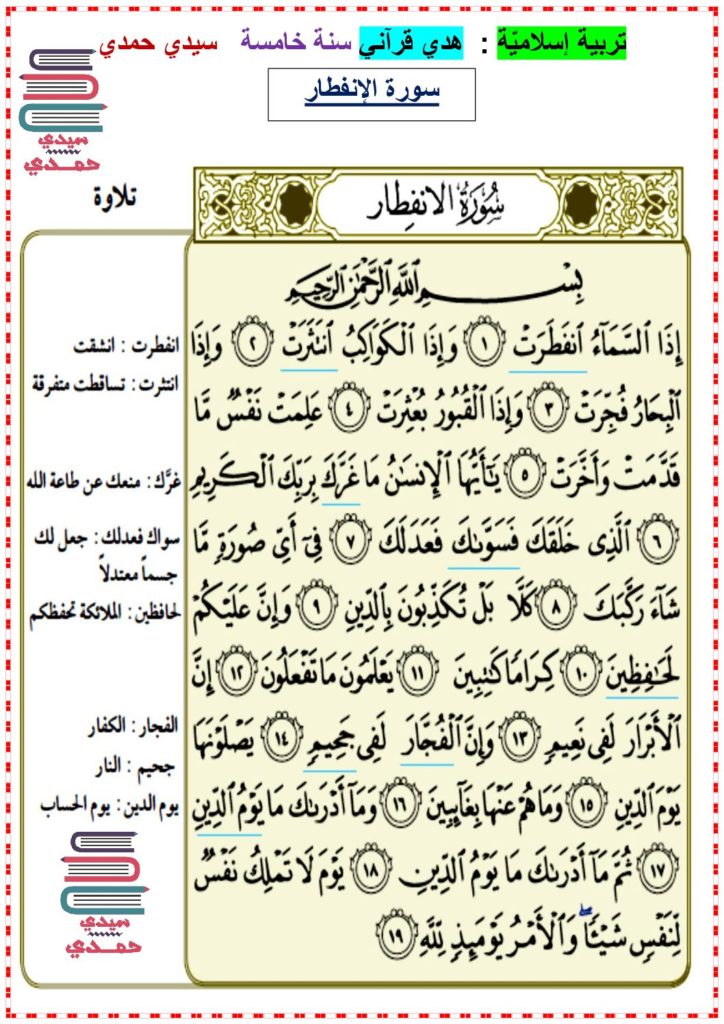 تربية إسلاميّة : هدي قرآني سنة خامسة سيدي حمدي
سورة الإنفطار
سيدي
حمـدي
تلاوة
سُورَةُ الانفِطار
بِسْمِ اللَّهِ الرَّحْمَٰنِ الرَّحِيمِ
إِذَا السَّمَآءُ انفَطَرَتْ ۝١ وَإِذَا الْكَوَاكِبُ انتَثَرَتْ ۝٢ وَإِذَا
الْبِحَارُ فُجِّرَتْ ۝٣ وَإِذَا الْقُبُورُ بُعْثِرَتْ ۝٤ عَلِمَتْ نَفْسٌ مَّا
قَدَّمَتْ وَأَخَّرَتْ ۝٥ يَٰٓأَيُّهَا الْإِنسَٰنُ مَا غَرَّكَ بِرَبِّكَ الْكَرِيمِ
۝٦ الَّذِى خَلَقَكَ فَسَوَّىٰكَ فَعَدَلَكَ ۝٧ فِىٓ أَىِّ صُورَةٍ مَّا
شَآءَ رَكَّبَكَ ۝٨ كَلَّا بَلْ تُكَذِّبُونَ بِالدِّينِ ۝٩ وَإِنَّ عَلَيْكُمْ
لَحَٰفِظِينَ ۝١٠ كِرَامًا كَٰتِبِينَ ۝١١ يَعْلَمُونَ مَا تَفْعَلُونَ ۝١٢ إِنَّ
الْأَبْرَارَ لَفِى نَعِيمٍ ۝١٣ وَإِنَّ الْفُجَّارَ لَفِى جَحِيمٍ ۝١٤ يَصْلَوْنَهَا
يَوْمَ الدِّينِ ۝١٥ وَمَا هُمْ عَنْهَا بِغَآئِبِينَ ۝١٦ وَمَآ أَدْرَىٰكَ مَا يَوْمُ الدِّينِ
۝١٧ ثُمَّ مَآ أَدْرَىٰكَ مَا يَوْمُ الدِّينِ ۝١٨ يَوْمَ لَا تَمْلِكُ نَفْسٌ
لِّنَفْسٍ شَيْـًٔا ۖ وَالْأَمْرُ يَوْمَئِذٍ لِّلَّهِ ۝١٩
انفطرت : انشقت
انتثرت : تساقطت متفرقة
غرَّك : منعك عن طاعة الله
سواك فعدلك : جعل لك
جسماً معتدلاً
لحافظين : الملائكة تحفظكم
الفجار : الكفار
جحيم : النار
يوم الدين : يوم الحساب
سيدي
حمـدي